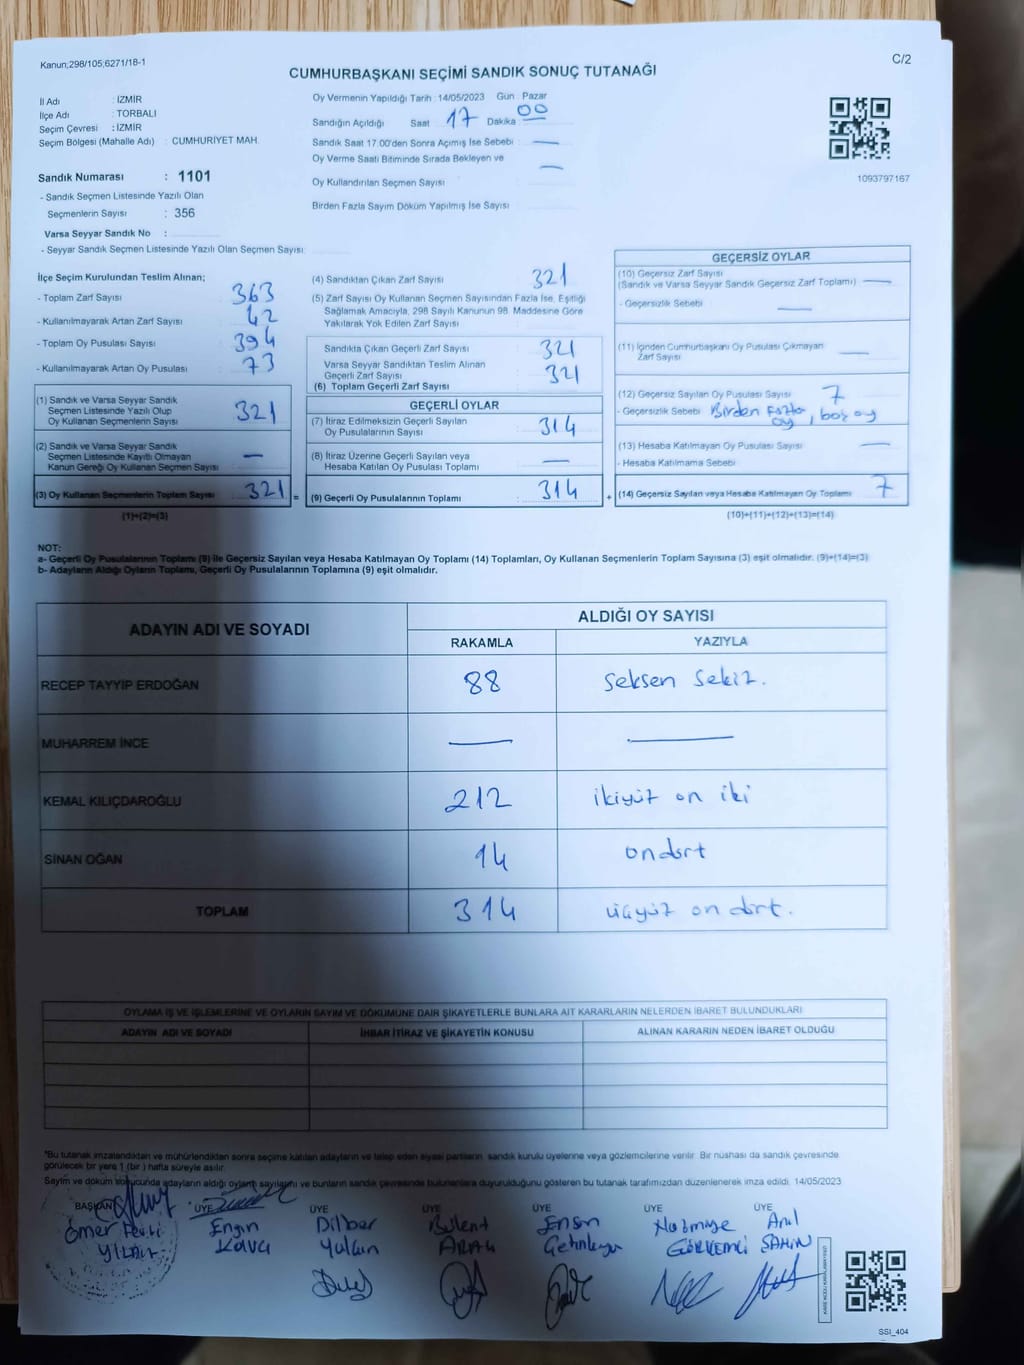 Kanun;298/105;6271/18-1
C/2
CUMHURBAŞKANI SEÇİMİ SANDIK SONUÇ TUTANAĞI
İl Adı : İZMİR
İlçe Adı : TORBALI
Seçim Çevresi : İZMİR
Seçim Bölgesi (Mahalle Adı) : CUMHURİYET MAH.
Oy Vermenin Yapıldığı Tarih : 14/05/2023 Gün : Pazar
Sandığın Açıldığı Saat 17 Dakika 00
Sandık Saat 17.00'den Sonra Açılmış İse Sebebi : —
Oy Verme Saati Bitiminde Sırada Bekleyen ve
Oy Kullandırılan Seçmen Sayısı —
Birden Fazla Sayım Döküm Yapılmış İse Sayısı
1093797167
Sandık Numarası : 1101
- Sandık Seçmen Listesinde Yazılı Olan
Seçmenlerin Sayısı : 356
Varsa Seyyar Sandık No :
- Seyyar Sandık Seçmen Listesinde Yazılı Olan Seçmen Sayısı
İlçe Seçim Kurulundan Teslim Alınan;
- Toplam Zarf Sayısı 363
- Kullanılmayarak Artan Zarf Sayısı 42
- Toplam Oy Pusulası Sayısı 394
- Kullanılmayarak Artan Oy Pusulası 73
(1) Sandık ve Varsa Seyyar Sandık
Seçmen Listesinde Yazılı Olup
Oy Kullanan Seçmenlerin Sayısı 321
(2) Sandık ve Varsa Seyyar Sandık
Seçmen Listesinde Kayıtlı Olmayan
Kanun Gereği Oy Kullanan Seçmen Sayısı —
(3) Oy Kullanan Seçmenlerin Toplam Sayısı 321 =
(1)+(2)=(3)
(4) Sandıktan Çıkan Zarf Sayısı 321
(5) Zarf Sayısı Oy Kullanan Seçmen Sayısından Fazla İse, Eşitliği
Sağlamak Amacıyla, 298 Sayılı Kanunun 98. Maddesine Göre
Yakılarak Yok Edilen Zarf Sayısı
Sandıkta Çıkan Geçerli Zarf Sayısı 321
Varsa Seyyar Sandıktan Teslim Alınan
Geçerli Zarf Sayısı
(6) Toplam Geçerli Zarf Sayısı 321
GEÇERLİ OYLAR
(7) İtiraz Edilmeksizin Geçerli Sayılan
Oy Pusulalarının Sayısı : 314
(8) İtiraz Üzerine Geçerli Sayılan veya
Hesaba Katılan Oy Pusulası Toplamı : —
(9) Geçerli Oy Pusulalarının Toplamı : 314 +
GEÇERSİZ OYLAR
(10) Geçersiz Zarf Sayısı
(Sandık ve Varsa Seyyar Sandık Geçersiz Zarf Toplamı) —
- Geçersizlik Sebebi —
(11) İçinden Cumhurbaşkanı Oy Pusulası Çıkmayan
Zarf Sayısı —
(12) Geçersiz Sayılan Oy Pusulası Sayısı 7
- Geçersizlik Sebebi Birden Fazla oy, boş oy
(13) Hesaba Katılmayan Oy Pusulası Sayısı —
- Hesaba Katılmama Sebebi
(14) Geçersiz Sayılan veya Hesaba Katılmayan Oy Toplamı 7
(10)+(11)+(12)+(13)=(14)
NOT:
a- Geçerli Oy Pusulalarının Toplamı (9) ile Geçersiz Sayılan veya Hesaba Katılmayan Oy Toplamı (14) Toplamları, Oy Kullanan Seçmenlerin Toplam Sayısına (3) eşit olmalıdır. (9)+(14)=(3)
b- Adayların Aldığı Oyların Toplamı, Geçerli Oy Pusulalarının Toplamına (9) eşit olmalıdır.
ADAYIN ADI VE SOYADI
ALDIĞI OY SAYISI
RAKAMLA YAZIYLA
RECEP TAYYİP ERDOĞAN 88 Seksen Sekiz.
MUHARREM İNCE — —
KEMAL KILIÇDAROĞLU 212 ikiyüz on iki
SİNAN OĞAN 14 ondört
TOPLAM 314 üçyüz on dört.
OYLAMA İŞ VE İŞLEMLERİNE VE OYLARIN SAYIM VE DÖKÜMÜNE DAİR ŞİKAYETLERLE BUNLARA AİT KARARLARIN NELERDEN İBARET BULUNDUKLARI
ADAYIN ADI VE SOYADI İHBAR İTİRAZ VE ŞİKAYETİN KONUSU ALINAN KARARIN NEDEN İBARET OLDUĞU
*Bu tutanak imzalandıktan ve mühürlendikten sonra seçime katılan adayların ve talep eden siyasi partilerin, sandık kurulu üyelerine veya gözlemcilerine verilir. Bir nüshası da sandık çevresinde
görülecek bir yere 1 (bir ) hafta süreyle asılır.
Sayım ve döküm sonucunda adayların aldığı oyların sayılarını ve bunların sandık çevresinde bulunanlara duyurulduğunu gösteren bu tutanak tarafımızdan düzenlenerek imza edildi. 14/05/2023
BAŞKAN ÜYE ÜYE ÜYE ÜYE ÜYE ÜYE
Ömer Engin Dilber Bülent Ensin Nazmiye Anıl
YILMAZ Kava Yalçın ARAL GÖRKEMLİ ŞAHİN
SSİ_404